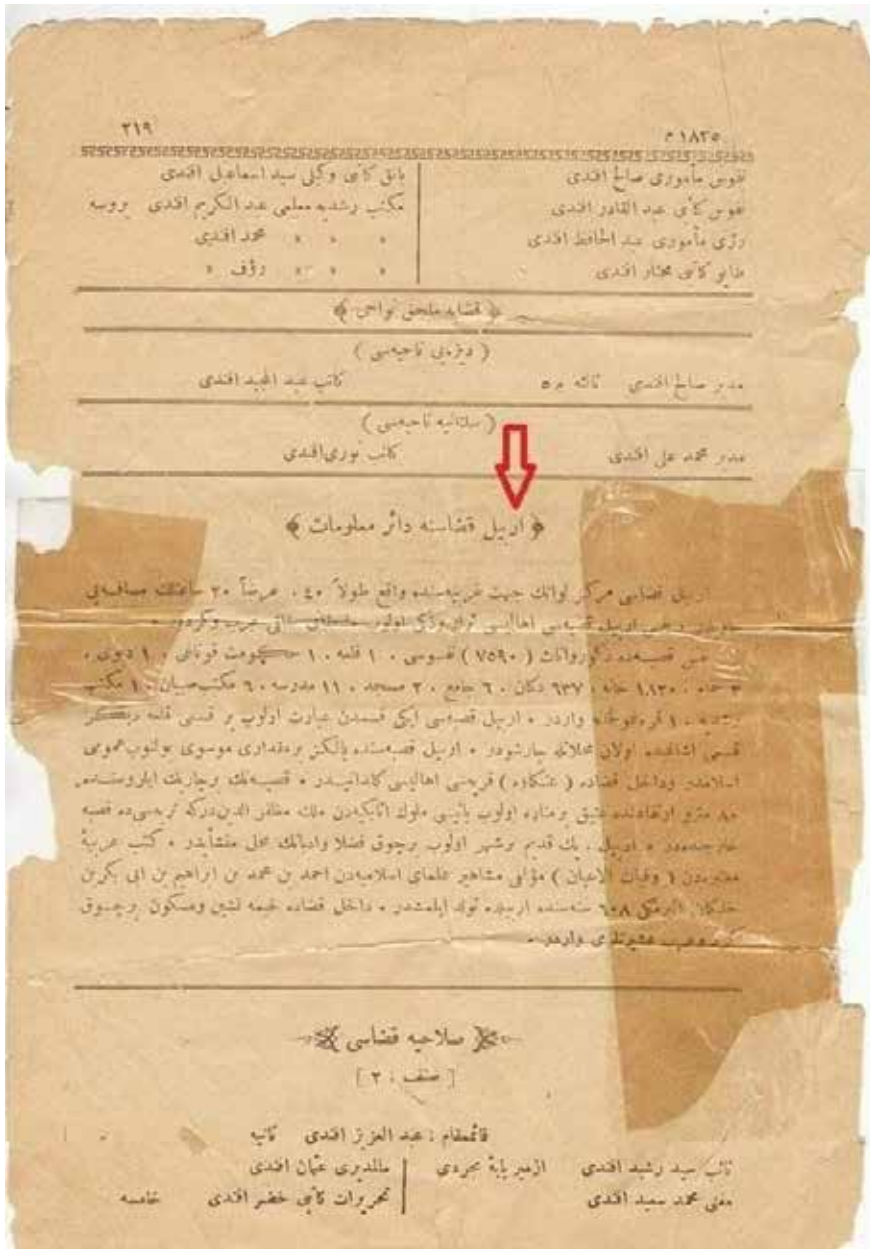 ٢١٩ ١٨٣٥ م
نفوس مأموری صالح افندی
نفوس كاتبی عبد القادر افندی
رژی مأموری عبد الحافظ افندی
طاپو كاتبی مختار افندی
بانق كاتبی وكیلی سید اسماعیل افندی
مكتب رشدیه معلمی عبد الكریم افندی بروسه
» » » محمد افندی
» » » رؤف »
﴿ قضایه ملحق نواحی ﴾
( دیزه‌یی ناحیه‌سی )
مدیر صالح افندی ثالثه م ٥ كاتب عبد المجید افندی
( سلطانیه ناحیه‌سی )
مدیر محمد علی افندی كاتب نوری افندی
﴿ اربیل قضاسنه دائر معلومات ﴾
اربیل قضاسی مركز لوانك جهت غربیه‌سنده واقع طولاً ٤٠ ، عرضاً ٢٠ ساعتلك مسافه‌یی
اربیل قصبه‌سی اهالیسی عرب وكرددر ٠
قصبه‌ده ذكوروانات ( ٧٥٩٠ ) نفوسی ، ١ قلعه ، ١ حكومت قوناغی ،
٣ حمام ، ١٨٣٠ خانه ، ٩٣٧ دكان ، ٦ جامع ، ٢٠ مسجد ، ١١ مدرسه ، ٦ مكتب صبیان ، ١ مكتب
رشدیه ، ١ واردر ٠ اربیل قصبه‌سی ایكی قسمدن عبارت اولوب بر قسمی قلعه دیگر
قسمی اشاغیده اولان محلاتله چارشودر ٠ اربیل قصبه‌سنده یالكز برمقداری موسوی بولنوب عمومی
اسلامدر وداخل قضاده ( عنكاوه ) قریه‌سی اهالیسی كلدانیدر ٠ قصبه‌نك برچاریك ایلروسنده
٨٠ مترو ارتفاعنده عتیق برمناره اولوب بانیسی ملوك اتابكیه‌دن ملك مظفر الدین دركه تربه‌سی ده قصبه
خارجنده‌در ٠ اربیل ، پك قدیم برشهر اولوب برچوق فضلا وادبانك محلی منشأیدر ٠ كتب عربیهٔ
معتبره‌دن ( وفیات الاعیان ) مؤلفی مشاهیر علمای اسلامیه‌دن احمد بن محمد بن ابراهیم بن ابی بكر بن
خلكان البرمكی ٦٠٨ سنه‌سنده اربیلده تولد ایلمشدر ٠ داخل قضاده خیمه نشین ومسكون برچوق
كرد وعرب عشیرتلری واردر ٠
صلاحیه قضاسی
[ صنف : ٢ ]
قائممقام : عبد العزیز افندی ثانیه
نائب سید رشید افندی ازمیر پایهٔ مجردی
مفتی محمد سعید افندی
مالمدیری عثمان افندی
تحریرات كاتبی خضر افندی خامسه